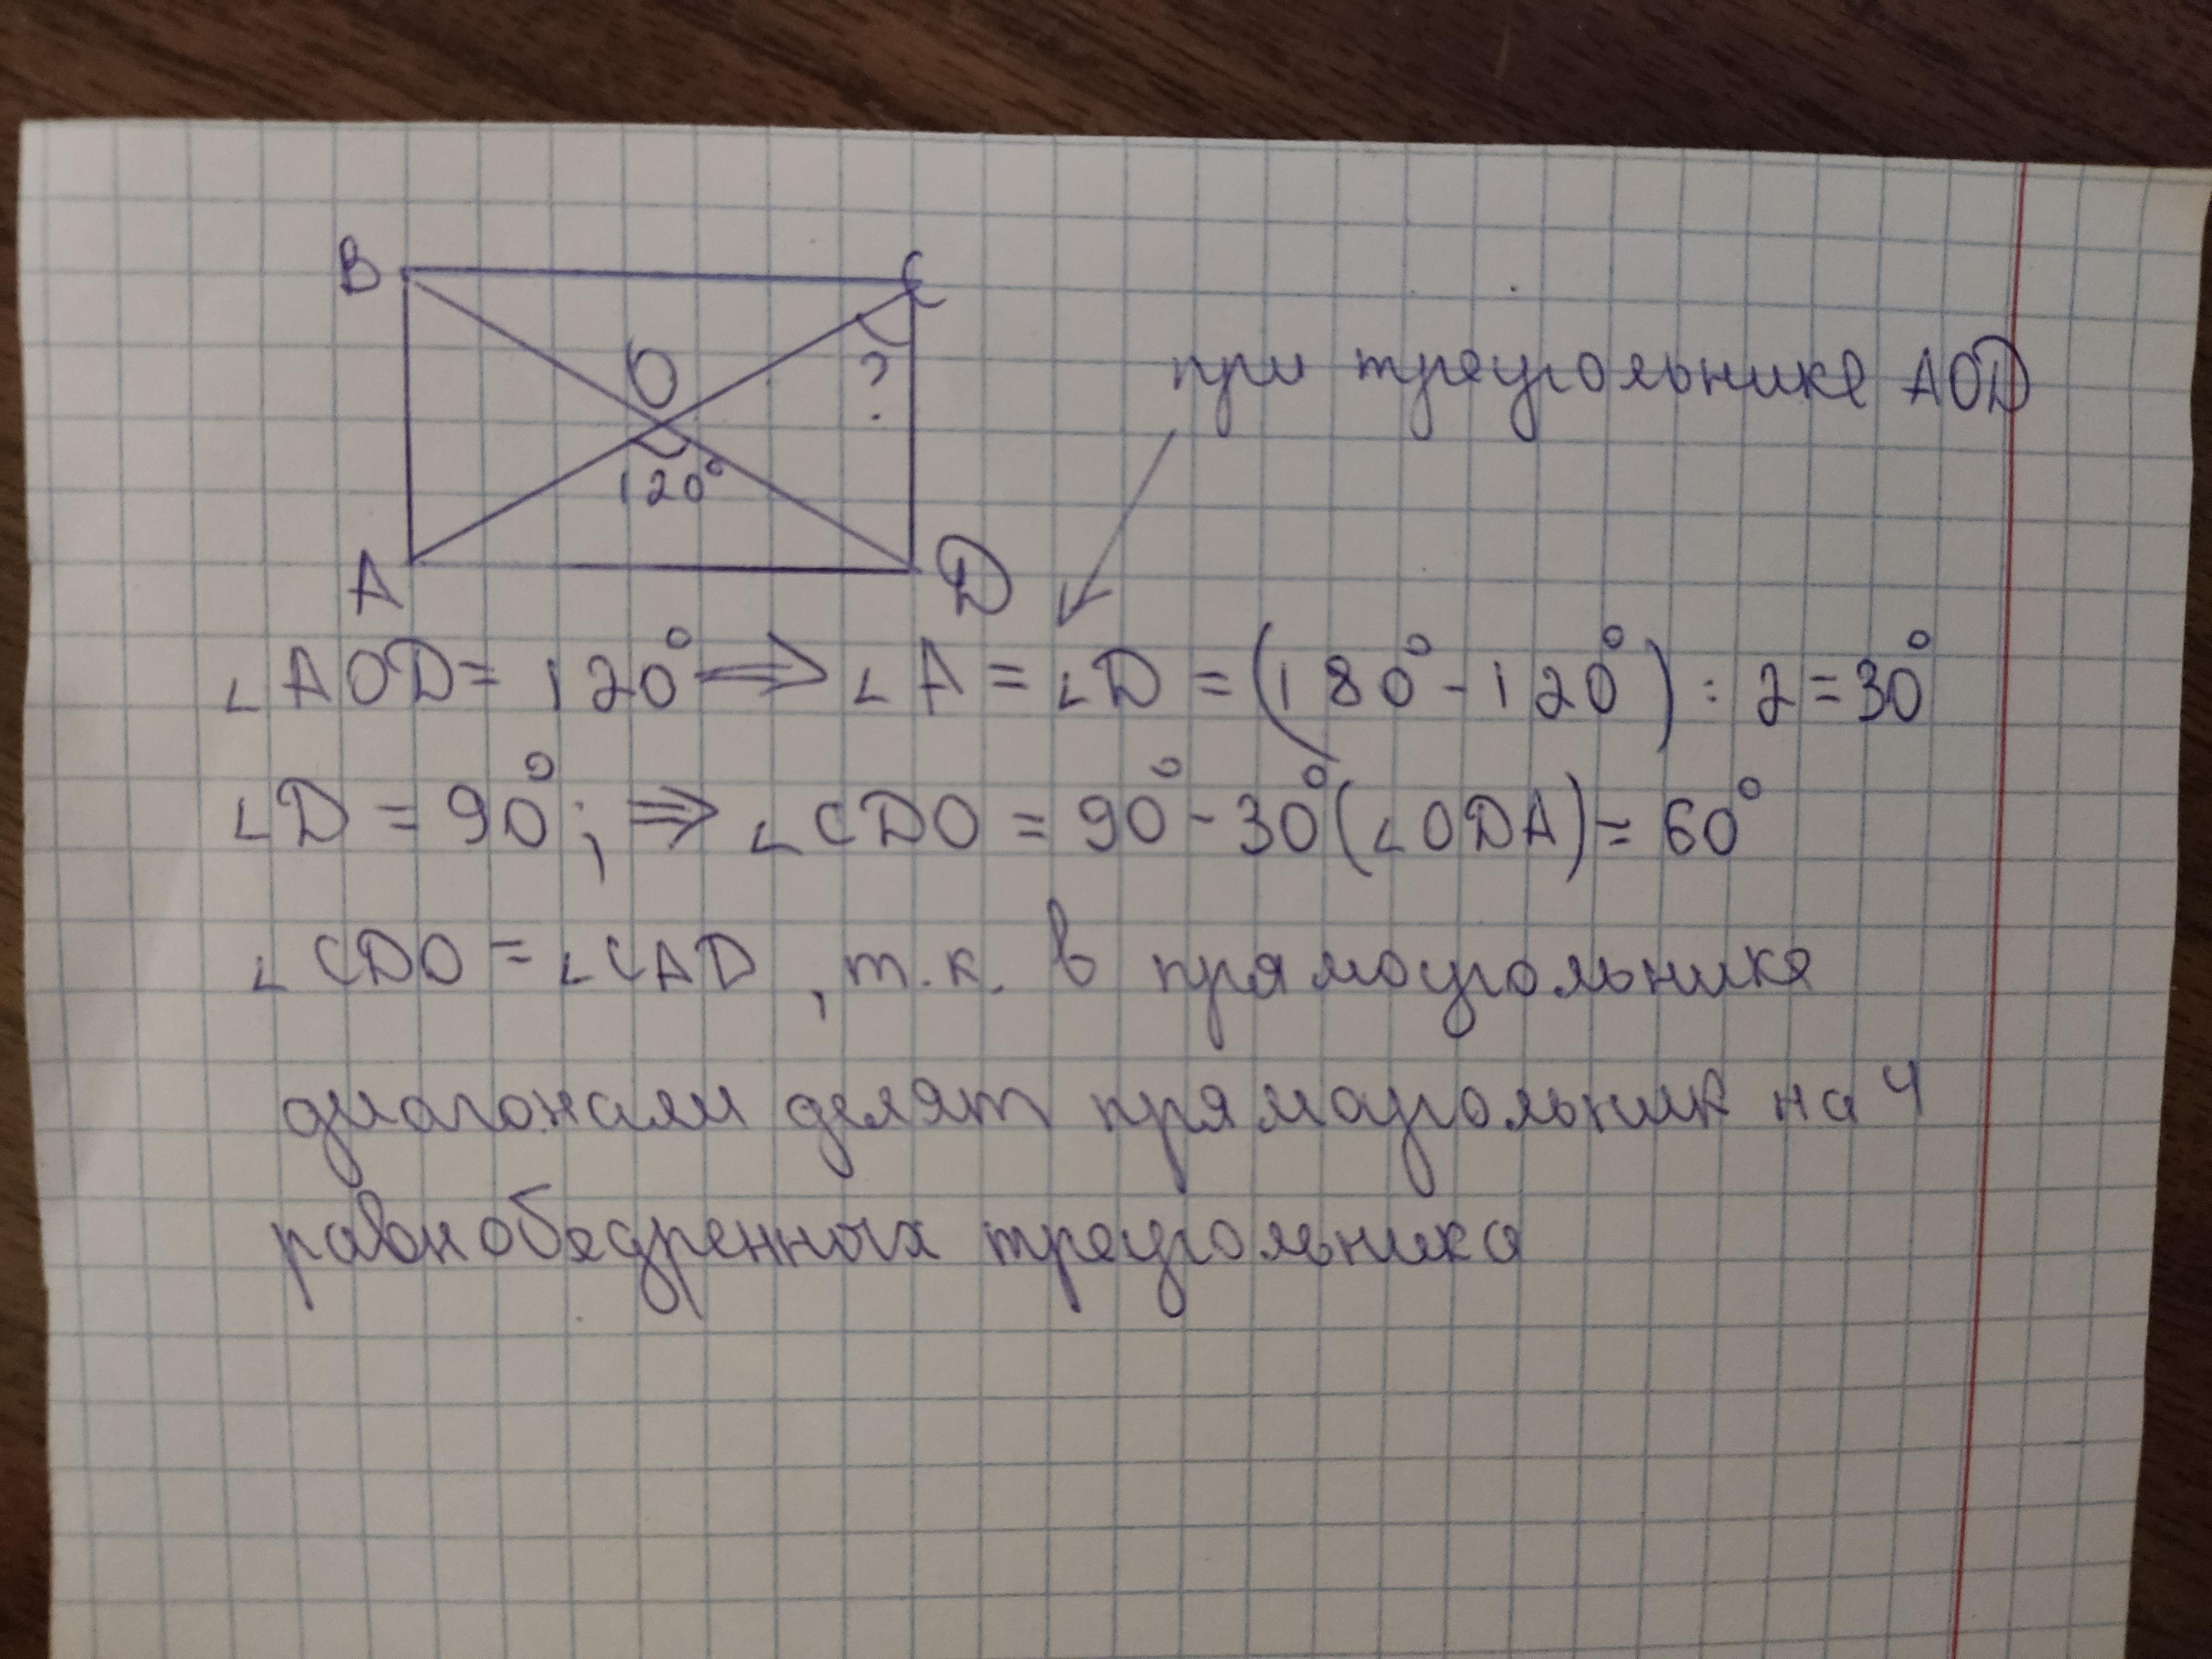 B C
O
?
120°
при треугольнике AOD
A D
∠AOD = 120° ⇒ ∠A = ∠D = (180° - 120°) : 2 = 30°
∠D = 90°; ⇒ ∠CDO = 90° - 30° (∠ODA) = 60°
∠CDO = ∠CAD, т.к. в прямоугольнике
диагонали делят прямоугольник на 4
равнобедренных треугольника